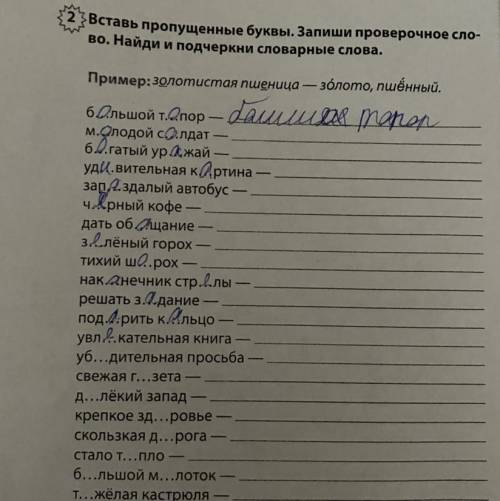 2 Вставь пропущенные буквы. Запиши проверочное сло-
во. Найди и подчеркни словарные слова.
Пример: золотистая пшеница — зо́лото, пшённый.
б.о.льшой т.о.пор —
м.о.лодой с.о.лдат —
б.о.гатый ур.о.жай —
уд.и.вительная к.а.ртина —
зап.а.здалый автобус —
ч.ё.рный кофе —
дать об.е.щание —
з.е.лёный горох —
тихий ш.о.рох —
нак.о.нечник стр.е.лы —
решать з.а.дание —
под.а.рить к.о.льцо —
увл.е.кательная книга —
уб...дительная просьба —
свежая г...зета —
д...лёкий запад —
крепкое зд...ровье —
скользкая д...рога —
стало т...пло —
б...льшой м...лоток —
т...жёлая кастрюля —